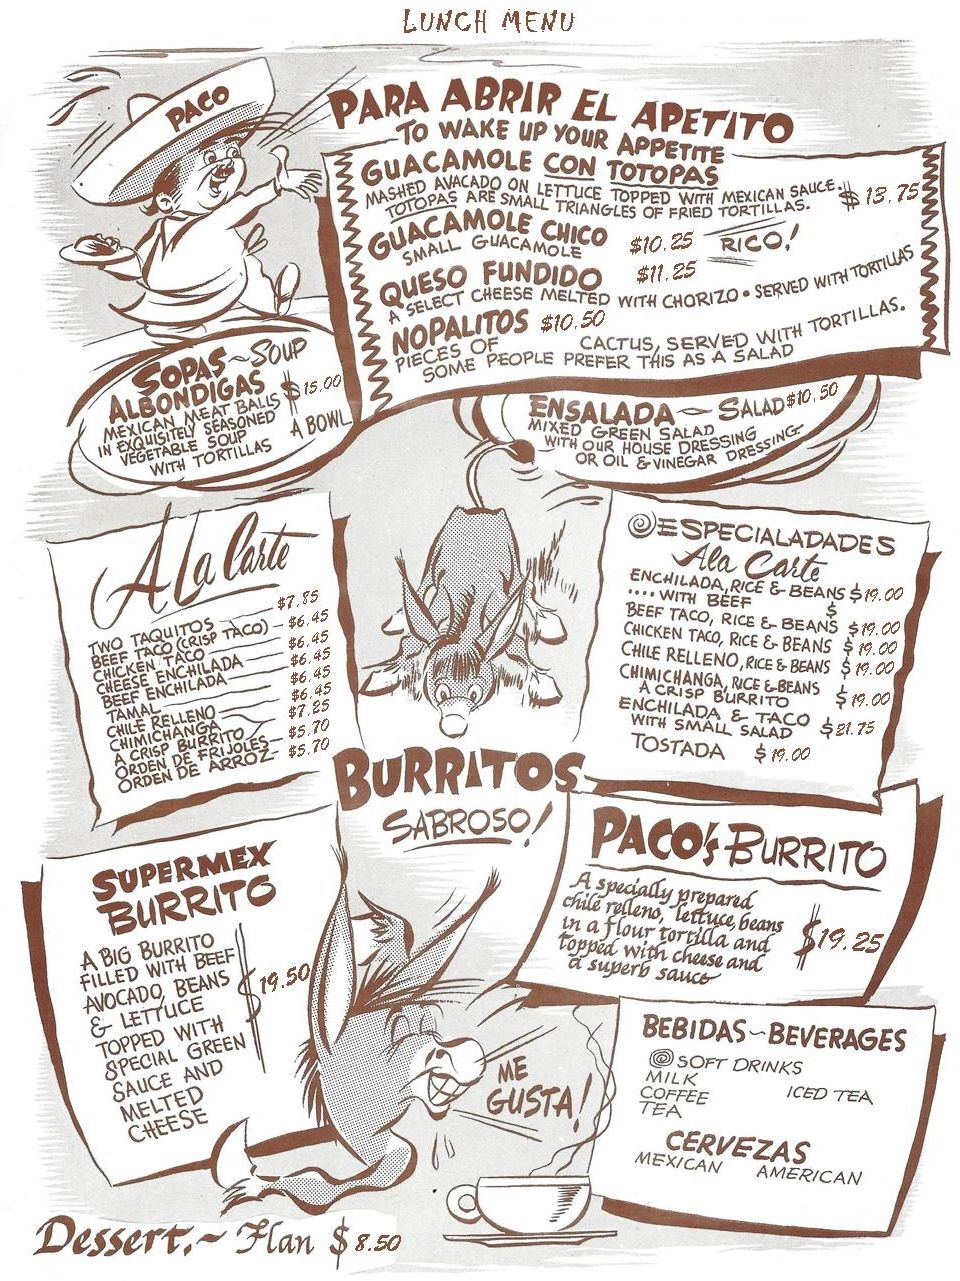 LUNCH MENU
PACO
PARA ABRIR EL APETITO
TO WAKE UP YOUR APPETITE
GUACAMOLE CON TOTOPAS
MASHED AVACADO ON LETTUCE TOPPED WITH MEXICAN SAUCE. $13.75
TOTOPAS ARE SMALL TRIANGLES OF FRIED TORTILLAS.
GUACAMOLE CHICO $10.25 RICO!
SMALL GUACAMOLE
QUESO FUNDIDO $11.25
A SELECT CHEESE MELTED WITH CHORIZO • SERVED WITH TORTILLAS
NOPALITOS $10.50
PIECES OF CACTUS, SERVED WITH TORTILLAS.
SOME PEOPLE PREFER THIS AS A SALAD
SOPAS ~ SOUP
ALBONDIGAS $15.00
MEXICAN MEAT BALLS
IN EXQUISITELY SEASONED A BOWL
VEGETABLE SOUP
WITH TORTILLAS
ENSALADA ~ SALAD $10.50
MIXED GREEN SALAD
WITH OUR HOUSE DRESSING
OR OIL & VINEGAR DRESSING
A La Carte
TWO TAQUITOS $7.85
BEEF TACO (CRISP TACO) $6.45
CHICKEN TACO $6.45
CHEESE ENCHILADA $6.45
BEEF ENCHILADA $6.45
TAMAL $6.45
CHILE RELLENO $7.25
CHIMICHANGA
A CRISP BURRITO
ORDEN DE FRIJOLES $5.70
ORDEN DE ARROZ $5.70
ESPECIALADADES
Ala Carte
ENCHILADA, RICE & BEANS $19.00
.... WITH BEEF $
BEEF TACO, RICE & BEANS $19.00
CHICKEN TACO, RICE & BEANS $19.00
CHILE RELLENO, RICE & BEANS $19.00
CHIMICHANGA, RICE & BEANS
A CRISP BURRITO $19.00
ENCHILADA & TACO
WITH SMALL SALAD $21.75
TOSTADA $19.00
BURRITOS
SABROSO!
SUPERMEX
BURRITO
A BIG BURRITO
FILLED WITH BEEF
AVOCADO, BEANS $19.50
& LETTUCE
TOPPED WITH
SPECIAL GREEN
SAUCE AND
MELTED
CHEESE
PACO's BURRITO
A specially prepared
chile relleno, lettuce, beans
in a flour tortilla and $19.25
topped with cheese and
a superb sauce
ME
GUSTA!
BEBIDAS ~ BEVERAGES
SOFT DRINKS
MILK
COFFEE ICED TEA
TEA
CERVEZAS
MEXICAN AMERICAN
Dessert. ~ Flan $8.50